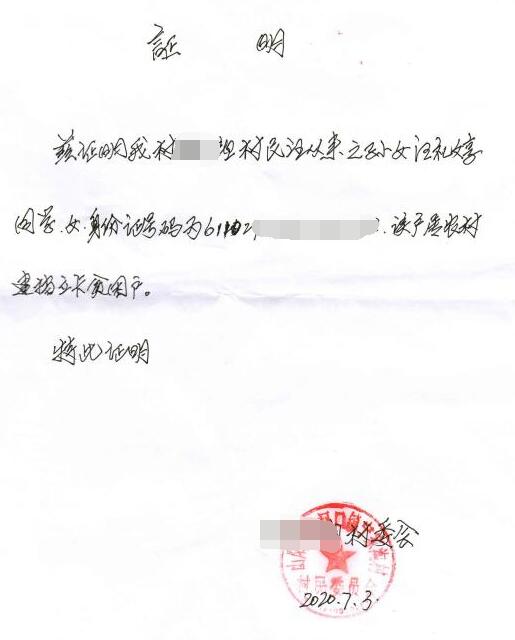 証 明
兹证明我村 组村民汪从来之孙女汪礼婷
同学，女，身份证号码为61102 ，该户居我村
建档立卡贫困户。
特此证明
村委会
村民委员会
2020.7.3.